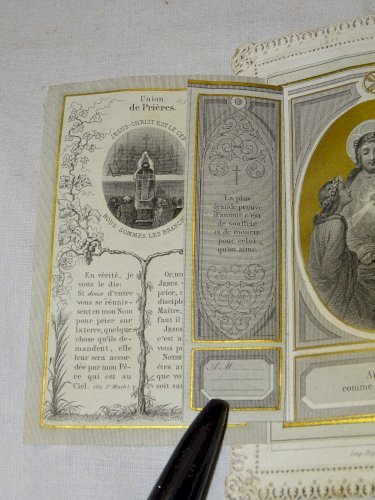 Union
de Prières.
JESUS-CHRIST EST LE CEP
NOUS SOMMES LES BRANCHES
En vérité, je
vous le dis:
Si deux d'entre
vous se réunis-
sent en mon Nom
pour prier sur
la terre, quelque
chose qu'ils de-
mandent, elle
leur sera accor-
dée par mon Pè-
re qui est au
Ciel.
Or, nou
JESUS
prier, t
disciple
Maître,
faut il
JESUS
c'est a
pour
NOTRE
êtes a
que vo
soit san
La plus
grande preuve
d'amour c'est
de souffrir
et de mourir
pour celui
qu'on aime.
A M
comme
Imp.